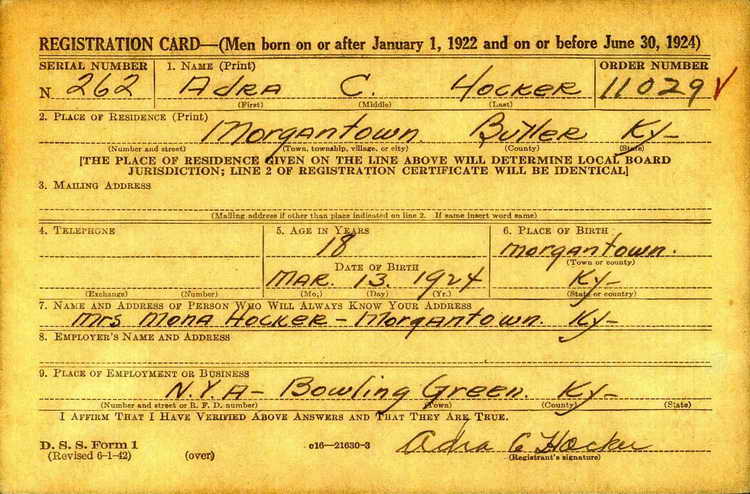 REGISTRATION CARD—(Men born on or after January 1, 1922 and on or before June 30, 1924)
SERIAL NUMBER 1. NAME (Print) ORDER NUMBER
N 262 Adra C. Hocker 11029
(First) (Middle) (Last)
2. PLACE OF RESIDENCE (Print)
Morgantown. Butler Ky-
(Number and street) (Town, township, village, or city) (County) (State)
[THE PLACE OF RESIDENCE GIVEN ON THE LINE ABOVE WILL DETERMINE LOCAL BOARD
JURISDICTION; LINE 2 OF REGISTRATION CERTIFICATE WILL BE IDENTICAL]
3. MAILING ADDRESS
(Mailing address if other than place indicated on line 2. If same insert word same)
4. TELEPHONE 5. AGE IN YEARS 6. PLACE OF BIRTH
18 Morgantown.
DATE OF BIRTH (Town or county)
Mar. 13. 1924 Ky-
(Exchange) (Number) (Mo.) (Day) (Yr.) (State or country)
7. NAME AND ADDRESS OF PERSON WHO WILL ALWAYS KNOW YOUR ADDRESS
Mrs Mona Hocker - Morgantown. Ky-
8. EMPLOYER'S NAME AND ADDRESS
9. PLACE OF EMPLOYMENT OR BUSINESS
N.Y.A- Bowling Green. Ky-
(Number and street or R. F. D. number) (Town) (County) (State)
I AFFIRM THAT I HAVE VERIFIED ABOVE ANSWERS AND THAT THEY ARE TRUE.
D. S. S. Form 1
(Revised 6-1-42) (over) c16—21630-3 Adra C Hocker
(Registrant's signature)